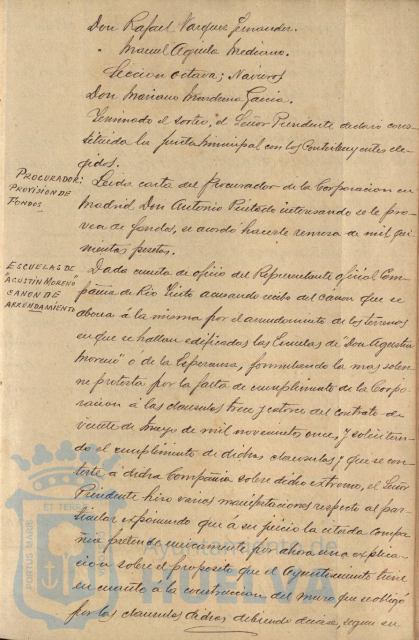 Don Rafael Vazquez Fernandez.
" Manuel Aquila Mediano.
Seccion octava; Navieros
Don Mariano Mardema Garcia.
Terminado el sorteo, el Señor Presidente declaró cons-
tituida la junta municipal con los Contribuyentes ele-
gidos.
PROCURADOR;
PROVISIÓN DE
FONDOS
Leida carta del Procurador de la Corporacion en
Madrid Don Antonio Pintado interesando se le pro-
vea de fondos, se acordó hacerle remesa de mil qui-
nientas pesetas.
ESCUELAS DE
"AGUSTÍN MORENO"
CANON DE
ARRENDAMIENTO
Dada cuenta de oficio del Representante oficial Com-
pañia de Rio Tinto acusando recibo del cánon que se
abona á la misma por el arrendamiento de los terrenos
en que se hallan edificadas las Escuelas de "Don Agustin
Moreno" o de la Esperanza, formulando la mas solem-
ne protesta por la falta de cumplimiento de la Corpo-
racion á las clausulas trece y catorce del contrato de
veinte de Mayo de mil novecientos once, y solicitan-
do el cumplimiento de dichas clausulas y que se con-
teste á dicha Compañia sobre dicho extremo, el Señor
Presidente hizo varias manifestaciones respecto al par-
ticular exponiendo que a su juicio la citada compa-
ñia pretende unicamente por ahora una explica-
cion sobre el proposito que el Ayuntamiento tiene
en cuanto á la construccion del muro que se obligó
por las clausulas dichas debiendo decirse, segun su
PORTUS MARIS ET TERRAE
Ayuntamiento de
HUELVA